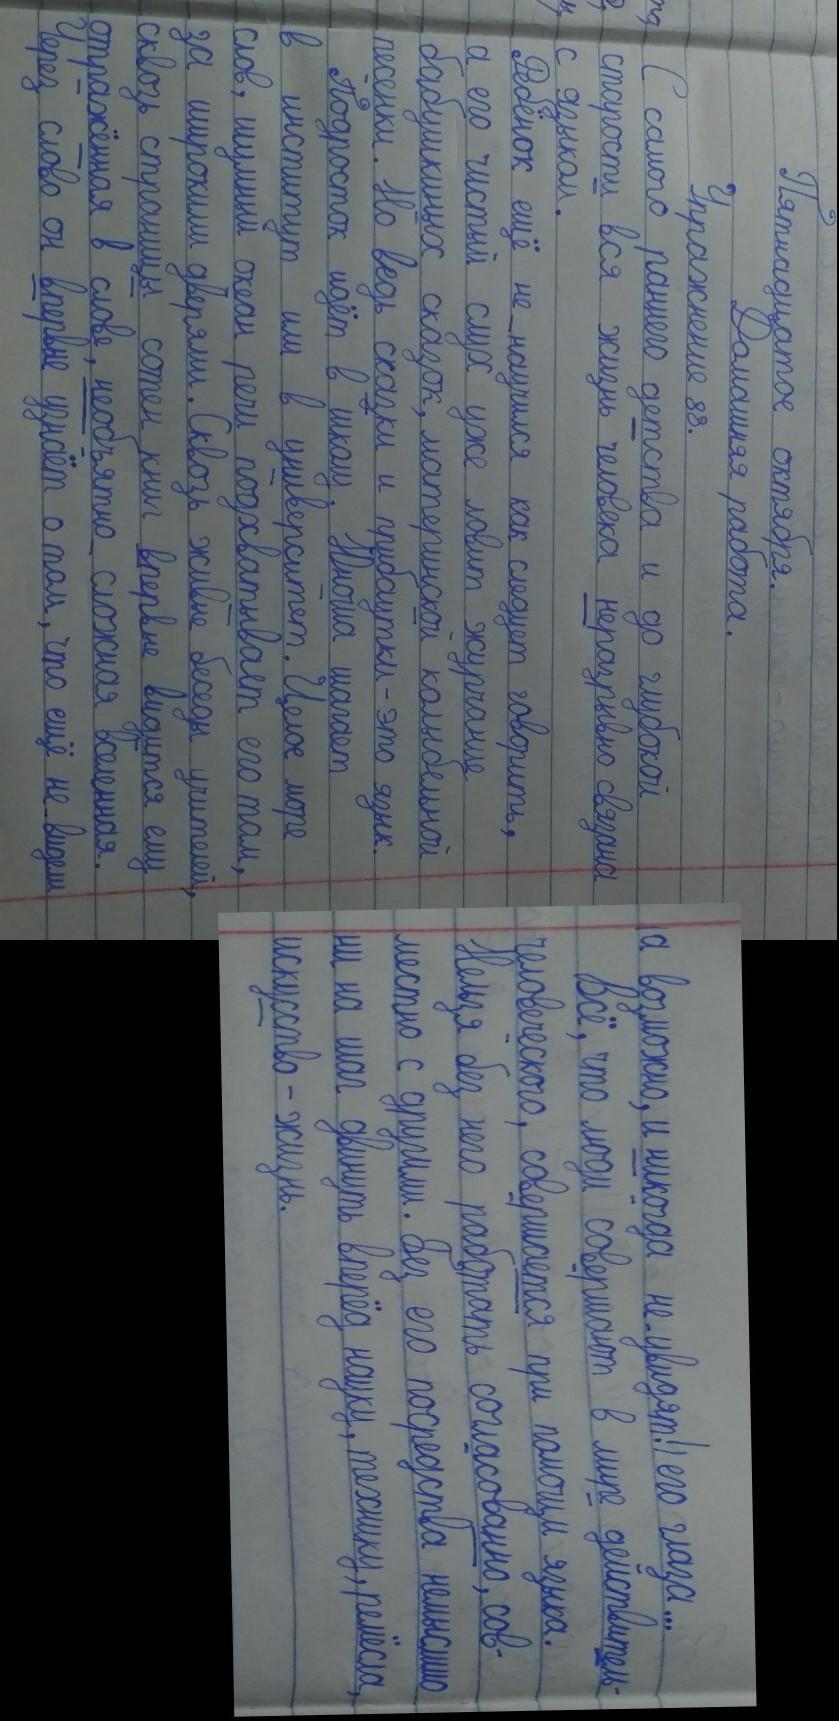 Пятнадцатое октября.
Домашняя работа.
Упражнение 88.
С самого раннего детства и до глубокой
старости вся жизнь человека неразрывно связана
с языком.
Ребёнок ещё не научился как следует говорить,
а его чистый слух уже ловит журчание
бабушкиных сказок, материнской колыбельной
песенки. Но ведь сказки и прибаутки - это язык.
Подросток идёт в школу. Юноша шагает
в институт или в университет. Целое море
слов, шумный океан речи подхватывает его там,
за широкими дверями. Сквозь живые беседы учителей,
сквозь страницы сотен книг впервые видится ему
отражённая в слове, необъятно сложная вселенная.
Через слово он впервые узнаёт о том, что ещё не видели
а возможно, и никогда не увидят!) его глаза...
Всё, что люди совершают в мире действитель-
человеческого, совершается при помощи языка.
Нельзя без него работать согласованно, сов-
местно с другими. Без его посредства немыслимо
ни на шаг двинуть вперёд науку, технику, ремёсла,
искусство - жизнь.